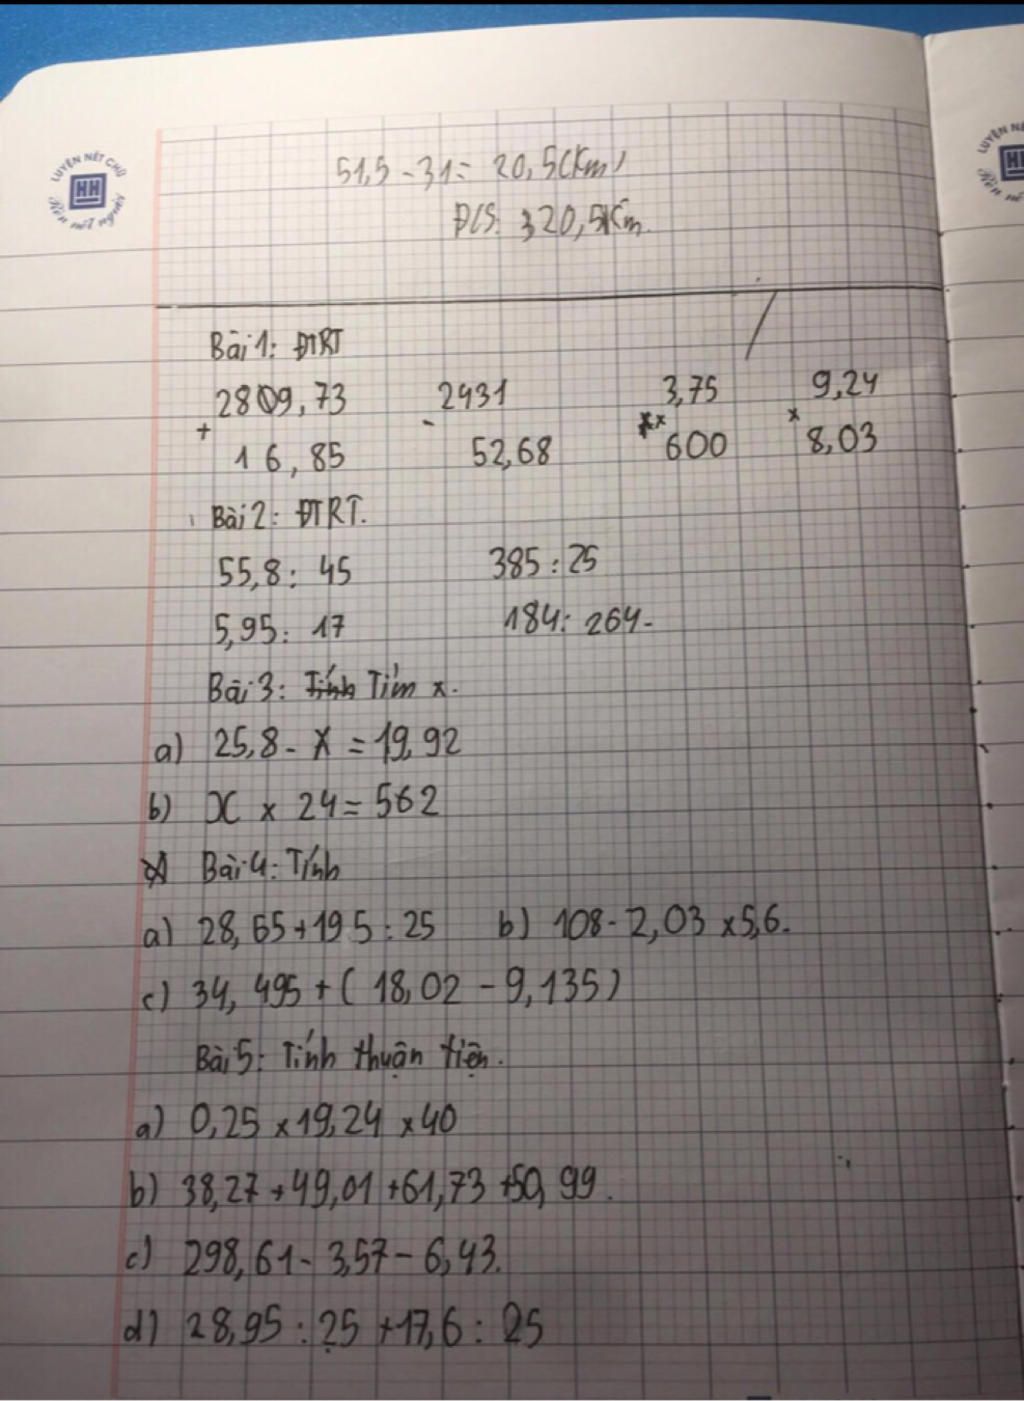 LUYỆN NÉT CHỮ
HH
Rèn nết người
51,5 - 31 = 20,5 (Km)
Đ/S: 320,5 Km.
Bài 1: ĐTRT
2809,73 2431 3,75 9,24
+ - x x
16,85 52,68 600 8,03
Bài 2: ĐTRT.
55,8 : 45 385 : 25
5,95 : 17 184 : 264-
Bài 3: Tính Tìm x.
a) 25,8 - x = 19,92
b) x x 24 = 562
Bài 4: Tính
a) 28,65 + 19 5 : 25 b) 108 - 2,03 x 5,6.
c) 34,495 + ( 18,02 - 9,135)
Bài 5: Tính thuận tiện.
a) 0,25 x 19,24 x 40
b) 38,27 + 49,01 + 61,73 + 50,99.
c) 298,61 - 3,57 - 6,43.
d) 28,95 : 25 + 17,6 : 25